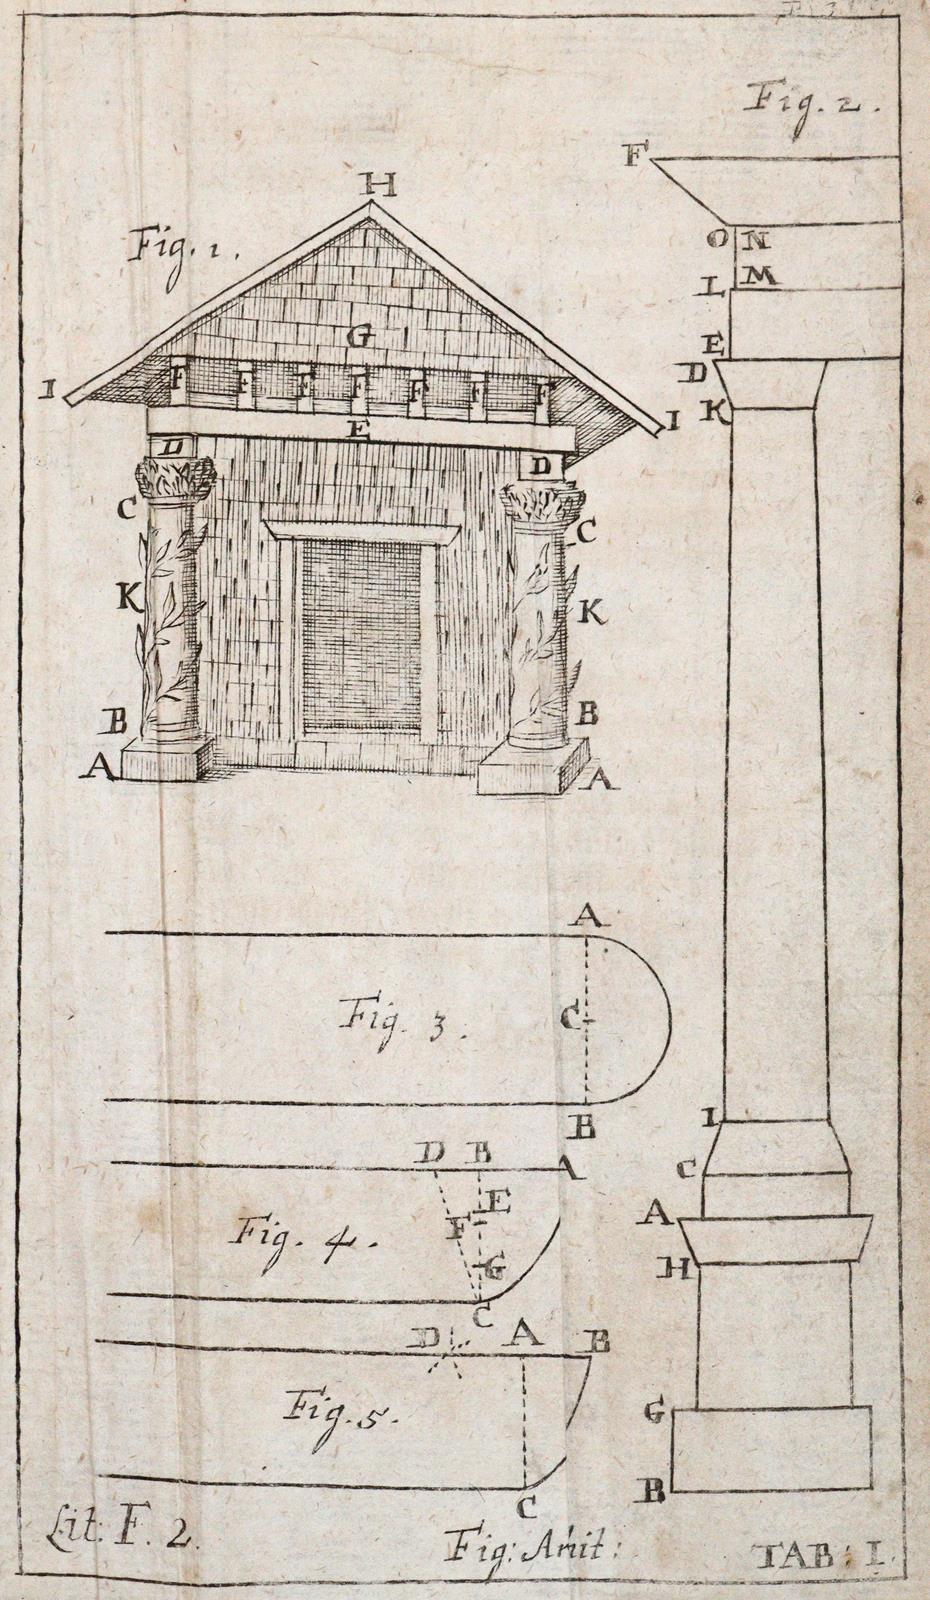 Fig. 2.
F
H
Fig. 1.
O N
M
L
G
E
D
I
F F F F F F F
K
I
E
D
D
C
C
K
K
B
B
A
A
A
Fig. 3.
C
B
I
D B A
C
E
F
A
Fig. 4.
G
H
C
D A B
Fig. 5.
G
B
C
Lit: F. 2.
TAB: I.